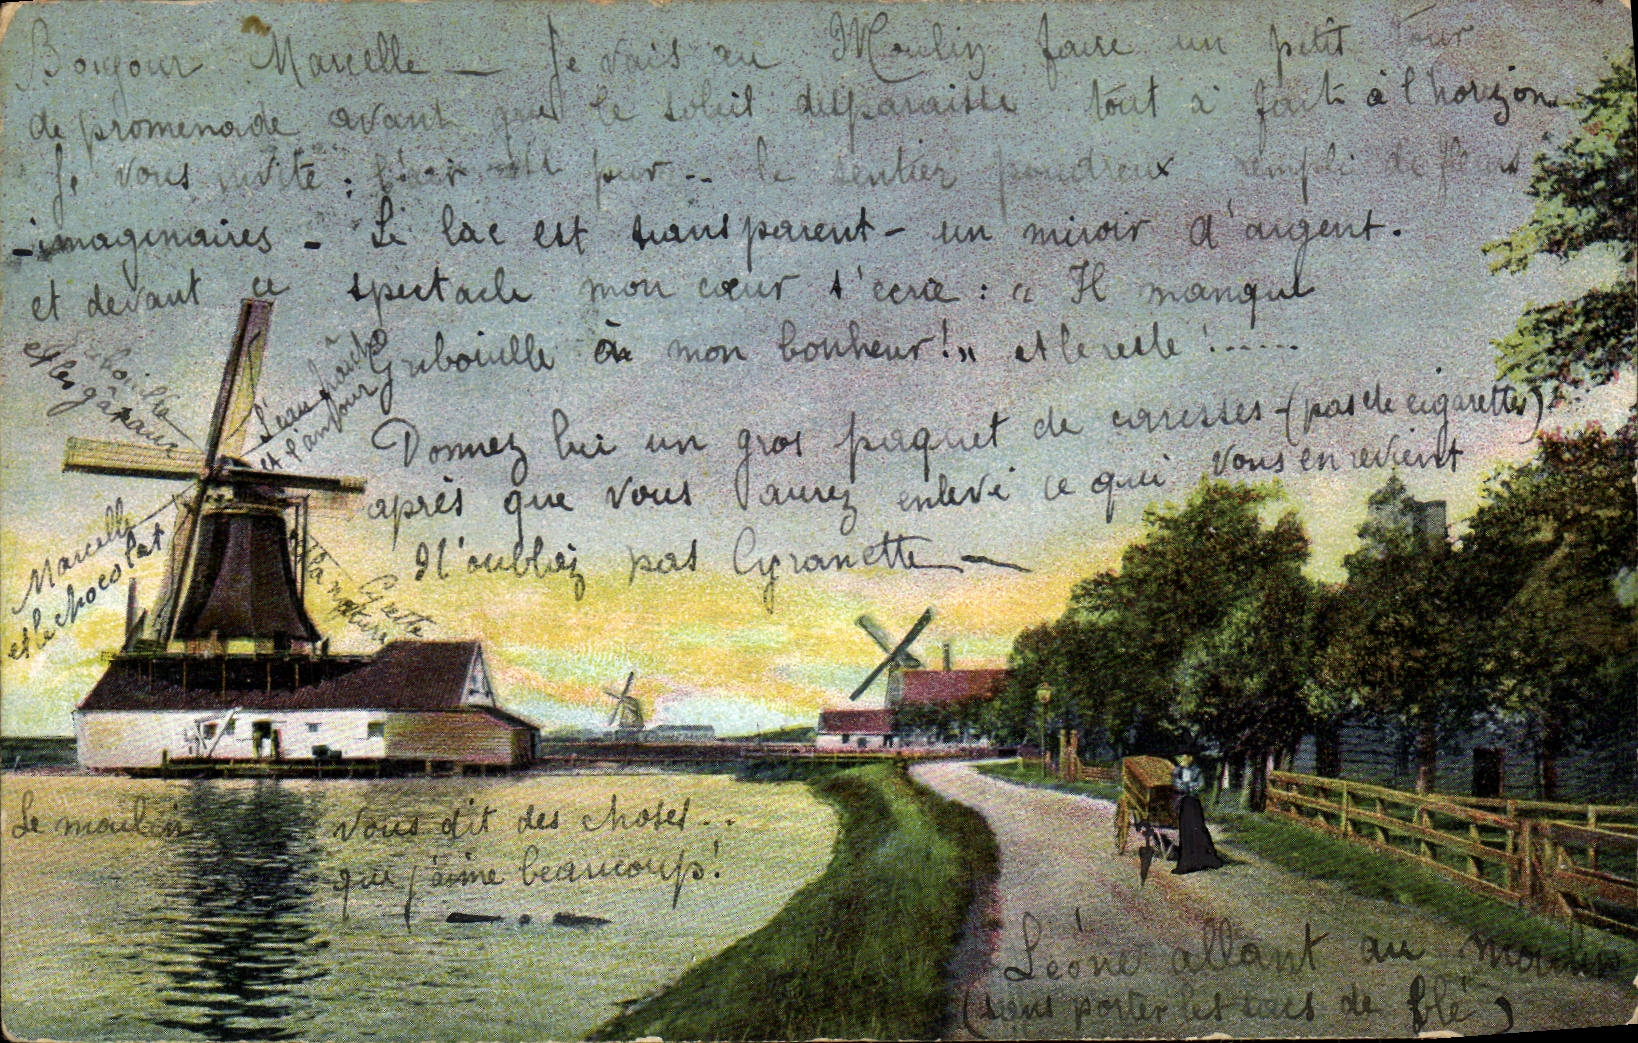 Bonjour Marcelle — Je vais au Moulin faire un petit tour
de promenade avant que le soleil disparaisse tout à fait à l'horizon
Je vous invite : l'air est pur.. le sentier poudreux rempli de fleurs
-imaginaires - Le lac est transparent - un miroir d'argent.
et devant ce spectacle mon cœur s'écrie : "Il manque
Gribouille à mon bonheur!" et le reste !......
Donnez lui un gros paquet de caresses - (pas de cigarettes)
après que vous aurez enlevé ce qui vous en revient
N'oubliez pas Cyranette —
et les gâteaux
L'eau
et l'amour
Marcelle
et le chocolat
Cyrette
et la nature
Le moulin vous dit des choses..
que j'aime beaucoup!
Léone allant au moulin
(sans porter les sacs de blé)